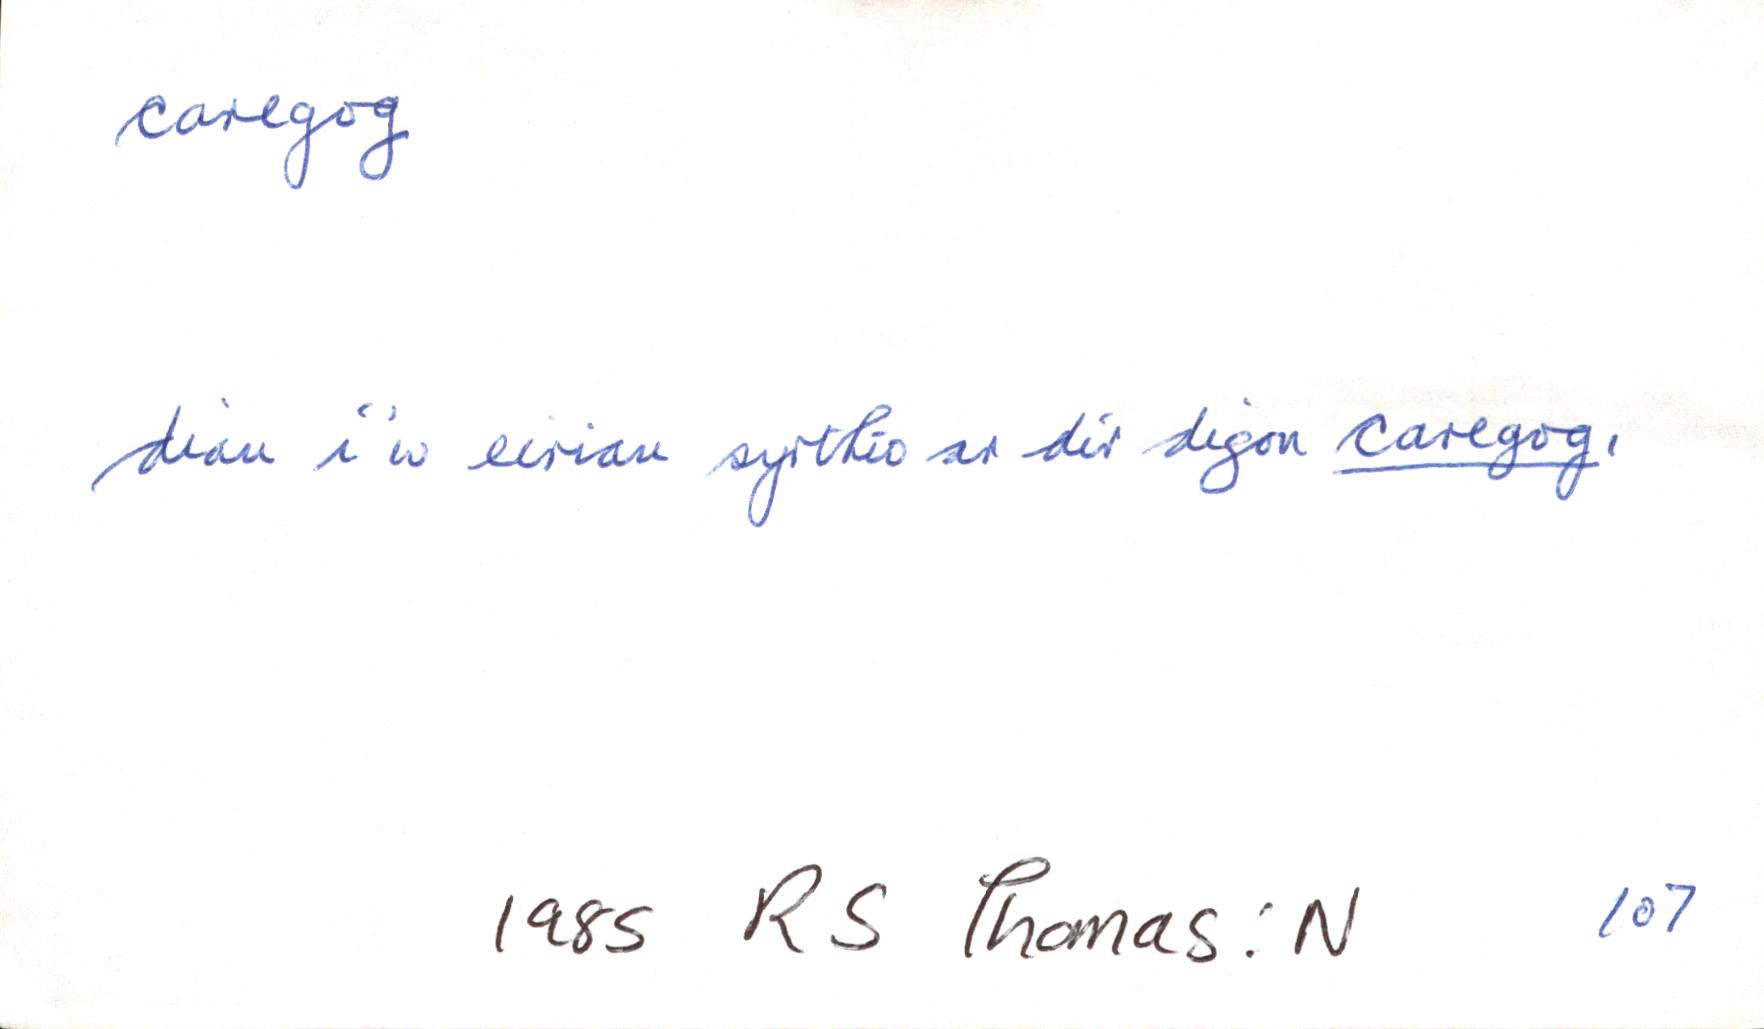 caregog
dian i'w eirian syrthio ar dir digon caregog.
1985 RS Thomas: N 107